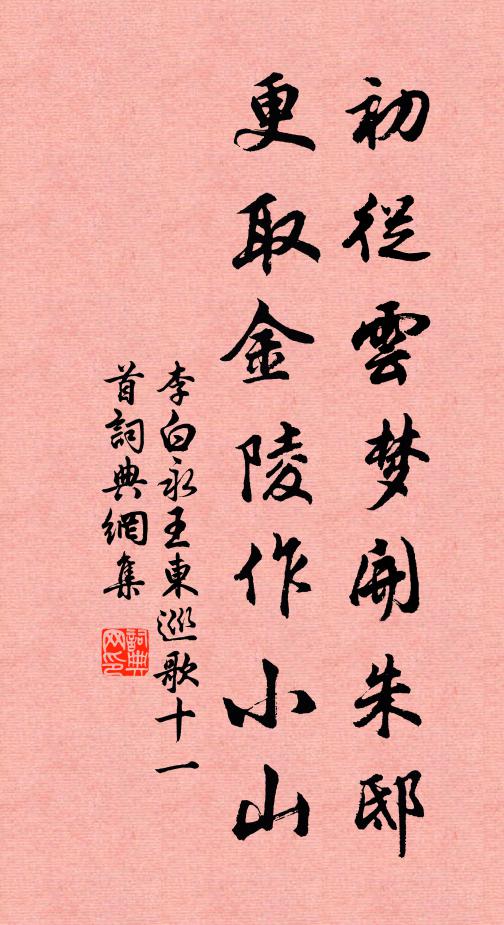 初從雲梦開朱邸
更取金陵作小山
李白永王東巡歌十一
首詞典網集
詞典
网印